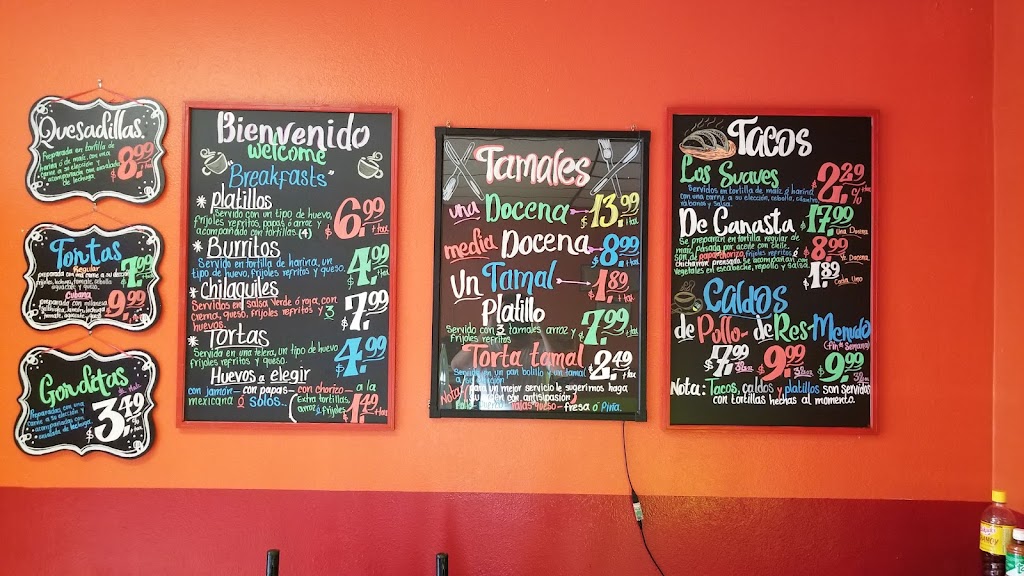 Quesadillas
Preparada en tortilla de
harina ó de maíz, con una
carne a su elección y
acompañada con ensalada
de lechuga.
$8.99
Tortas
Regular
preparada con una carne a su elección
frijoles, lechuga, tomate, cebolla
aguacate y queso.
$7.99
Cubana
preparada con milanesa
jamón,
tomate, aguacate, queso
$9.99
Gorditas
de Maíz
Preparadas con una
carne a su elección y
acompañadas con
ensalada de lechuga.
$3.49
Bienvenido
welcome
"Breakfasts"
* platillos
Servido con un tipo de huevo,
frijoles refritos, papas ó arroz y
acompañado con tortillas. (4)
$6.99
+ tax
* Burritos
Servido en tortilla de harina, un
tipo de huevo, frijoles refritos y queso.
$4.99
+ tax
* chilaquiles
Servidos en salsa Verde ó roja, con
Crema, queso, frijoles refritos y 3
huevos.
$7.99
* Tortas
Servida en una telera, un tipo de huevo
frijoles refritos y queso.
$4.99
Huevos a elegir
con jamón - con papas - con chorizo - a la
mexicana ó solos.
(Extra tortillas,
arroz ó frijoles $1.49
Tamales
una Docena $13.99
+ tax
media Docena $8.99
+ tax
Un Tamal $1.89
+ tax
Platillo
Servido con 3 tamales arroz y
frijoles
$7.99
+ tax
Torta tamal
Servido en un pan bolillo y un tamal
a
$2.49
+ tax
Nota: para un mejor servicio le sugerimos haga
su orden con antisipasión
rajas queso - fresa ó Piña.
Tacos
Los Suaves
Servidos en tortilla de maíz ó harina
con una carne a su elección, cebolla, cilantro
rábanos y salsa.
$2.29
c/u
+ tax
De Canasta
Se preparan en tortilla regular de
maíz, pasada por aceite con chile.
son de papa-chorizo, frijoles refritos ó
chicharron prensado. Se acompañan con
vegetales en escabeche, repollo y salsa.
$17.99
Una Docena
$8.99
½ Docena
$1.89
Cada Uno
Caldos
de Pollo - de Res - Menudo
(Fin de Semana)
$7.99
32oz
$9.99
32oz
$9.99
32oz
Nota: Tacos, caldos y platillos son servidos
con tortillas hechas al momento.